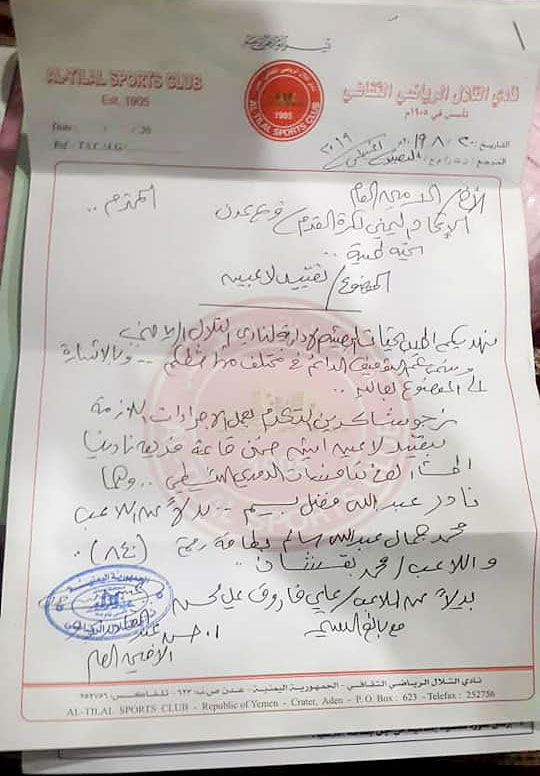 AL-TILAL SPORTS CLUB
Est. 1905
نادي التلال الرياضي الثقافي
تأسس في ١٩٠٥م
AL-TILAL SPORTS CLUB
1905
Date : / / 20
التاريخ: ٢٠ / ٨ / ٢٠١٩
الأخ/ الامين العام المحترم ..
الإتحاد اليمني لكرة القدم / فرع عدن
تحية طيبة ..
الموضوع/ تقييد لاعبين
نهديكم اطيب تحيات الهيئة الإدارية لنادي التلال الرياضي
التوفيق الدائم في مختلف .. وبالاشارة
الى الموضوع اعلاه ..
نرجو شاكرين التكرم بعمل الإجراءات اللازمة
بتقييد لاعبين اثنين ضمن قائمة فريق نادينا
التنشيطي .. وهما
نادر عبدالله فضل بسيم .. بدلاً عن اللاعب
محمد جمال عبدالله سالم بطاقة رقم (٨٤٠) ..
واللاعب/ محمد ..
بدلاً عن اللاعب/ علي فاروق علي محسن
الجمهورية اليمنية
الأمين العام
نادي التلال الرياضي الثقافي - الجمهورية اليمنية - عدن ص.ب: ٦٢٣ - تلفاكس: ٢٥٢٧٥٦
AL-TILAL SPORTS CLUB - Republic of Yemen - Crater, Aden - P. O Box : 623 -Telefax : 252756